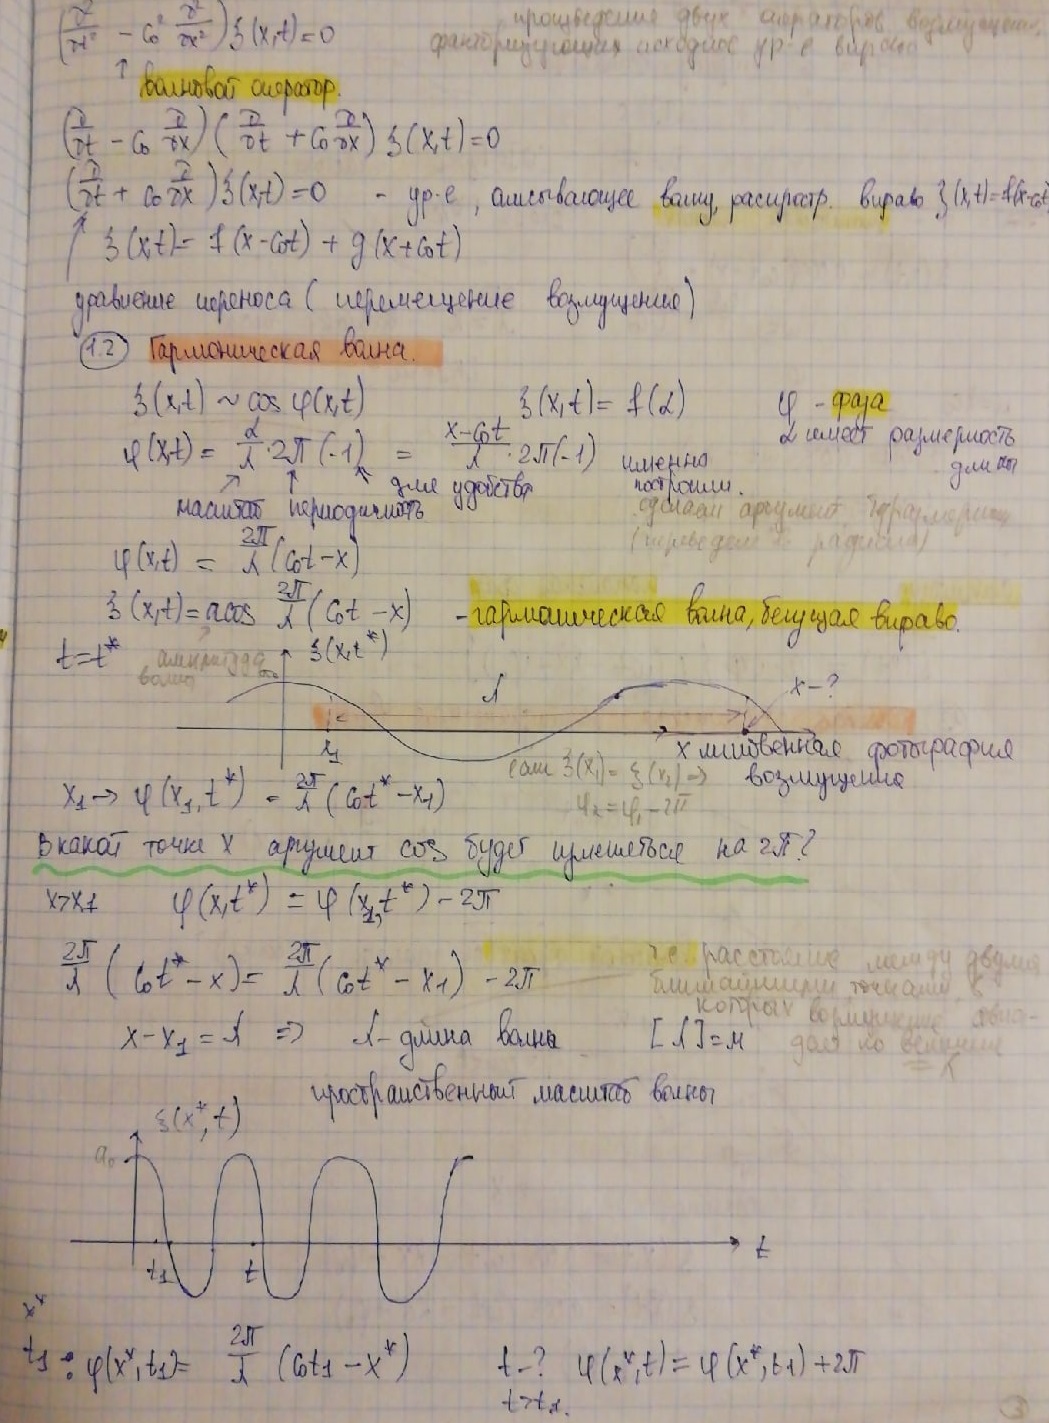 (∂²/∂t² − c₀² ∂²/∂x²) ξ(x,t)=0
произведения двух операторов возмущения,
факторизующих исходное ур-е вправо
↑
волновой оператор.
(∂/∂t − c₀ ∂/∂x) (∂/∂t + c₀ ∂/∂x) ξ(x,t)=0
(∂/∂t + c₀ ∂/∂x) ξ(x,t)=0 - ур-е, описывающее волну, распростр. вправо ξ(x,t)=f(x-c₀t)
ξ(x,t)= f(x-c₀t) + g(x+c₀t)
уравнение переноса (перемещение возмущение)
1.2 Гармоническая волна.
ξ(x,t) ~ cos φ(x,t) ξ(x,t)= f(α) φ - фаза
α имеет размерность
длины
φ(x,t) = α/λ · 2π (-1) = (x-c₀t)/λ · 2π(-1) именно
построили.
для удобства
масштаб периодичность
сделали аргумент безразмерным
(переведем в радианы)
φ(x,t) = 2π/λ (c₀t-x)
ξ(x,t)= a cos 2π/λ (c₀t-x) - гармоническая волна, бегущая вправо.
t=t* амплитуда
волна
ξ(x,t*)
a₀
λ
x-?
x₁
x мгновенная фотография
возмущения
если ξ(x₁)= ξ(x₂) ⇒
φ₂=φ₁-2π
x₁ → φ(x₁,t*) = 2π/λ (c₀t*-x₁)
В какой точке x аргумент cos будет изменяться на 2π?
x>x₁ φ(x,t*) = φ(x₁,t*) - 2π
2π/λ (c₀t*-x)= 2π/λ (c₀t*-x₁) - 2π
x-x₁ = λ ⇒ λ - длина волны [λ]=м
т.е расстояние между двумя
ближайшими точками, в
которых
пространственный масштаб волны
ξ(x*,t)
a₀
t₁
t
t
x*
t₁: φ(x*,t₁)= 2π/λ (c₀t₁-x*) t-? φ(x*,t) = φ(x*,t₁) + 2π
t>t₁.
3